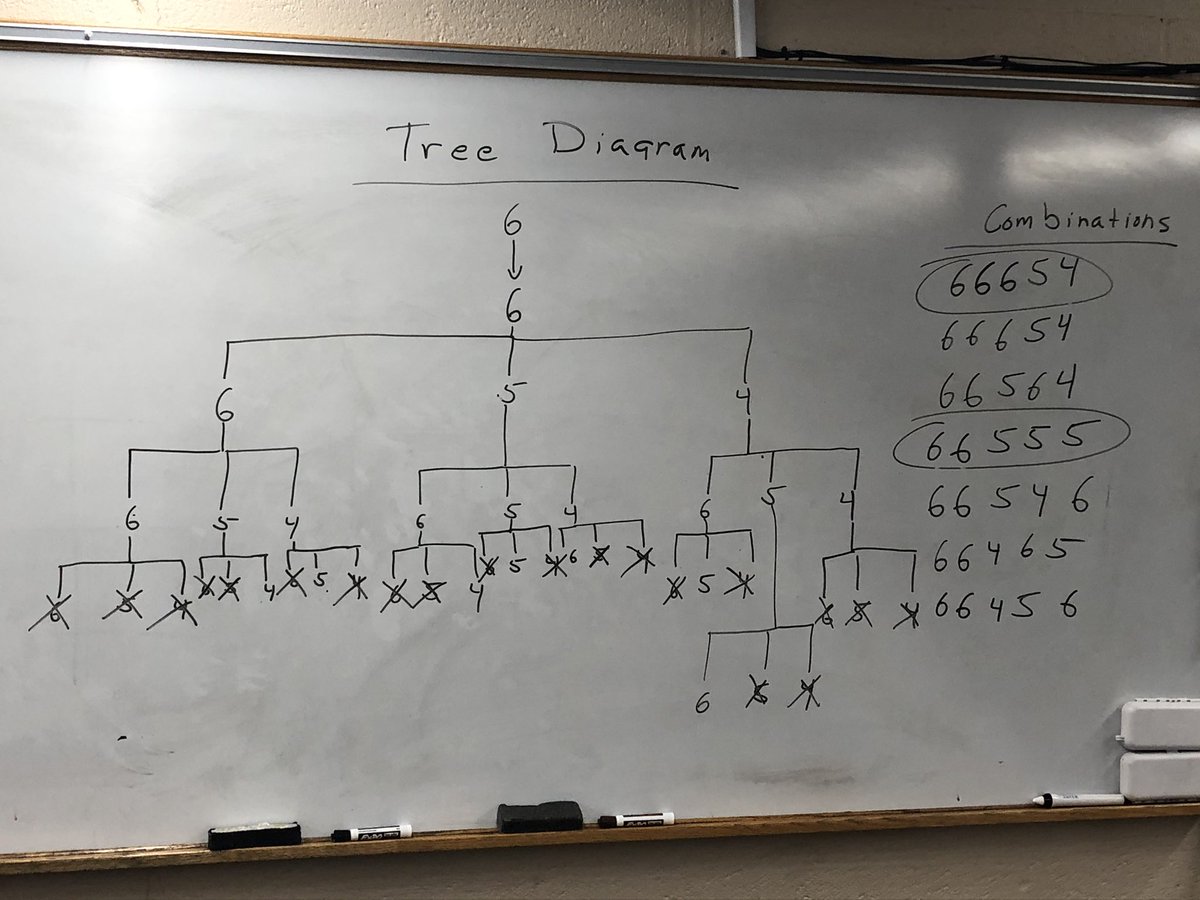 Tree Diagram
6
6
6 5 4
6 5 4 6 5 4 6 5 4
6 5 4 6 5 4 6 5 4 6 5 4 6 5 4 6 5 4 6 5 4 6 5 4
6 5 4
Combinations
66654
66654
66564
66555
66546
66465
66456
EXPO
EXPO